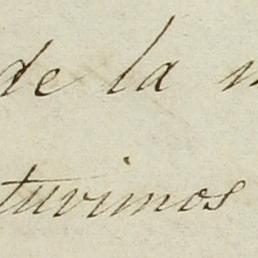 de la
tuvimos